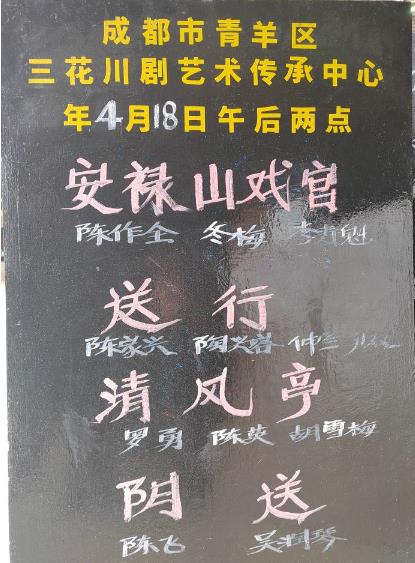 成都市青羊区
三花川剧艺术传承中心
年4月18日午后两点
安禄山戏宫
陈作全 冬梅 李魁
送行
陈家兴 陶芙蓉 仲兰
清风亭
罗勇 陈英 胡雪梅
阴送
陈飞 吴润琴